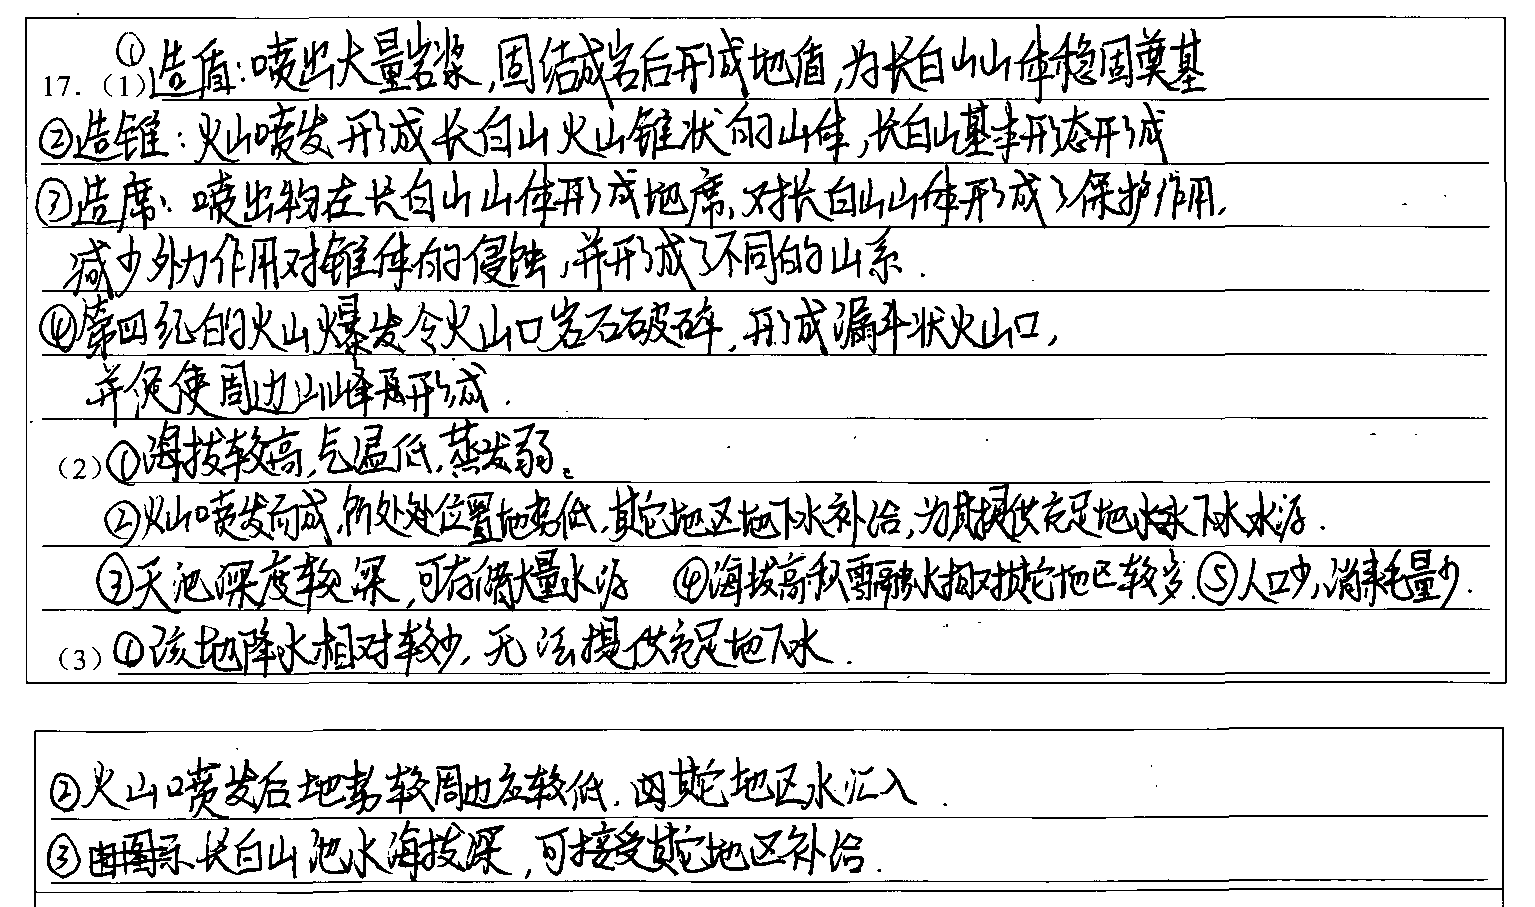 17.（1）①造盾：喷出大量岩浆，固结成岩后形成地盾，为长白山山体稳固奠基
②造锥：火山喷发形成长白山火山锥状的山体，长白山基本形态形成
③造席：喷出物在长白山山体形成地席，对长白山山体形成了保护作用，
减少外力作用对锥体的侵蚀，并形成了不同的山系．
④第四纪的火山爆发令火山口岩石破碎，形成漏斗状火山口，
并促使周边山峰形成．
（2）①海拔较高，气温低，蒸发弱。
②火山喷发而成，所处位置地势低，其它地区地下水补给，为其提供充足地下水水源．
③天池深度较深，可存储大量水源 ④海拔高积雪融水相对其它地区较多．⑤人口少，消耗量少．
（3）①该地降水相对较少，无法提供充足地下水．
②火山喷发后地势较周边应较低，因其它地区水汇入．
③长白山池水海拔深，可接受其它地区补给．